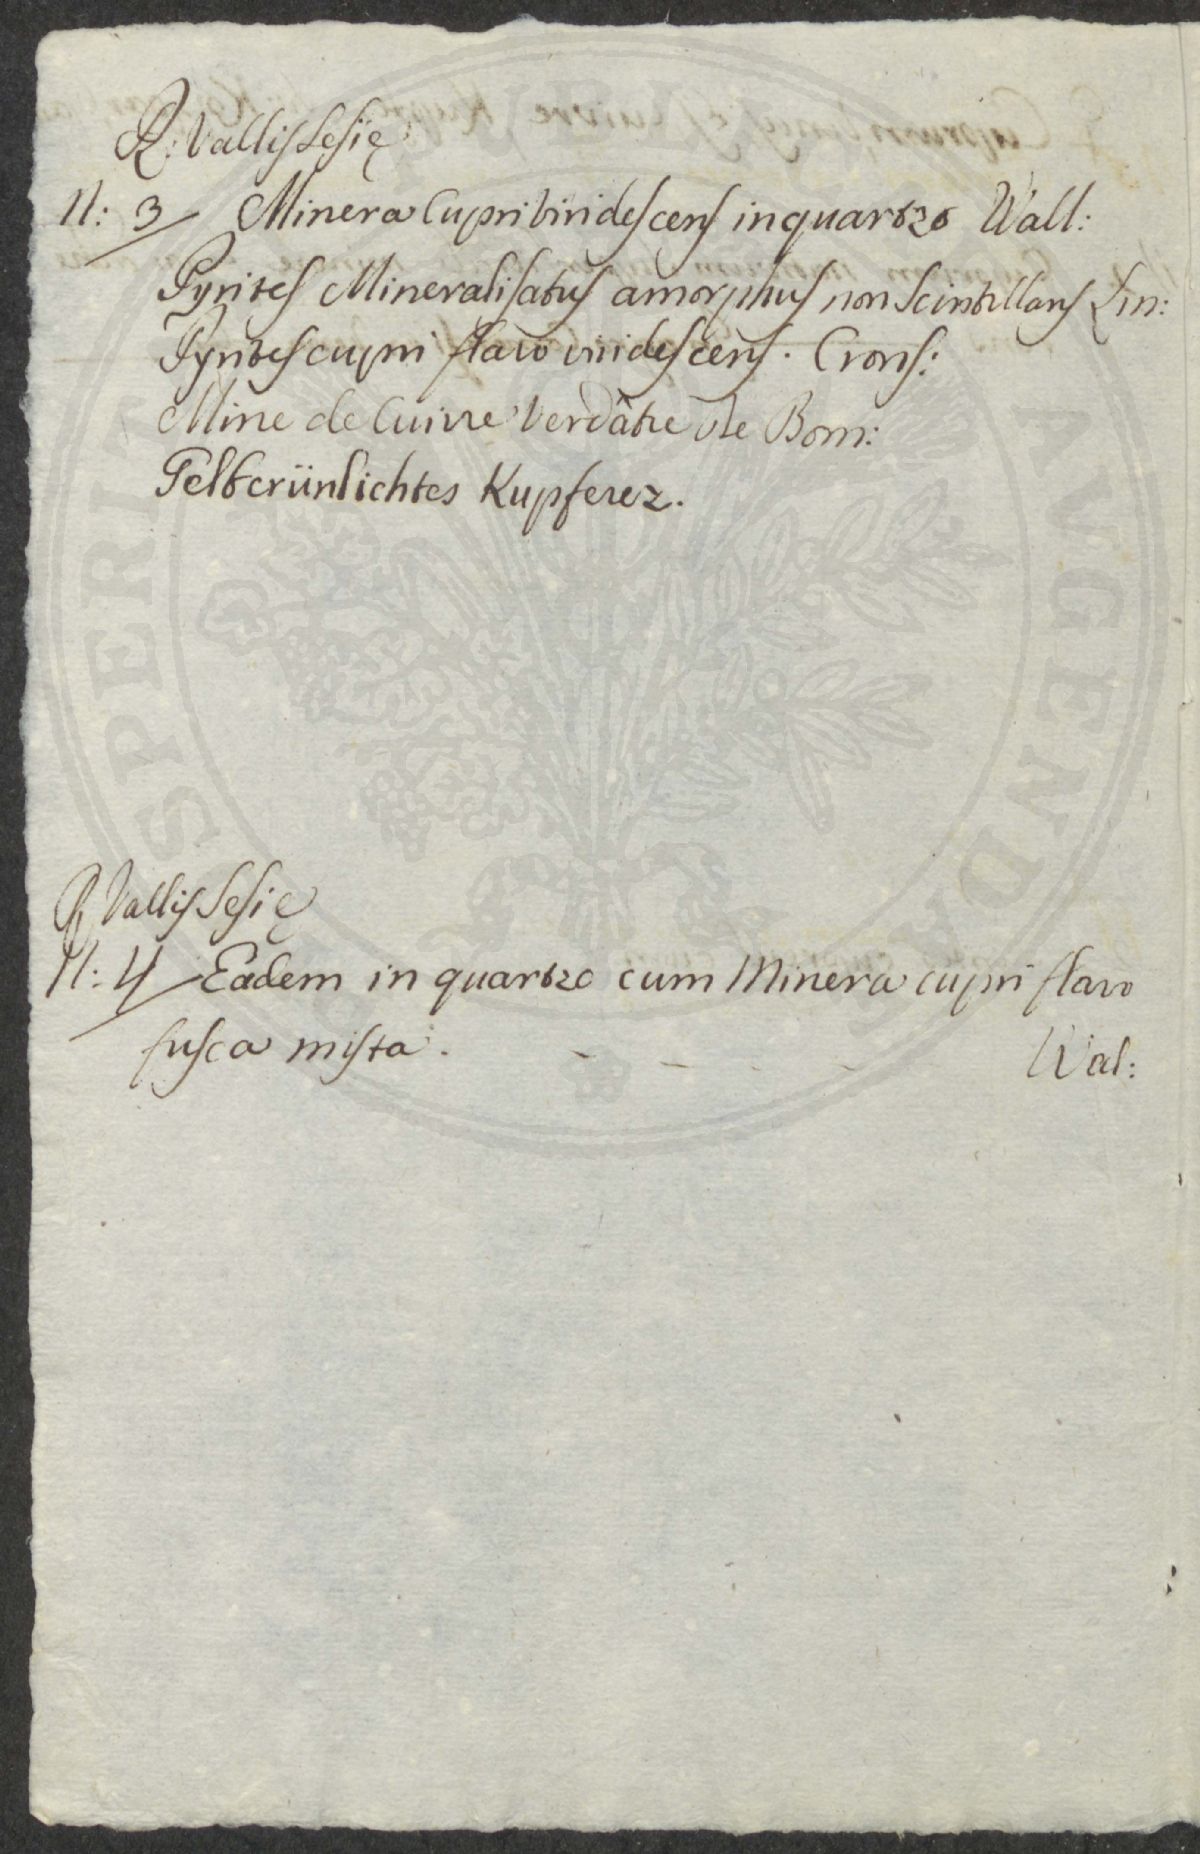 R: Vallis Sesię
N: 3 Minera Cupri viridescens in quartzo Wall:
Pyrites Mineralisatus amorphus non Scintillans Lin:
Pyrites cupri flavo viridescens. Crons:
Mine de Cuivre Verdâtre de Bom:
Gelbcrünlichtes Kupferez.
R Vallis Sesię
N: 4 Eadem in quartzo cum Minera cupri flavo
fusca mista. - - - - Wal: